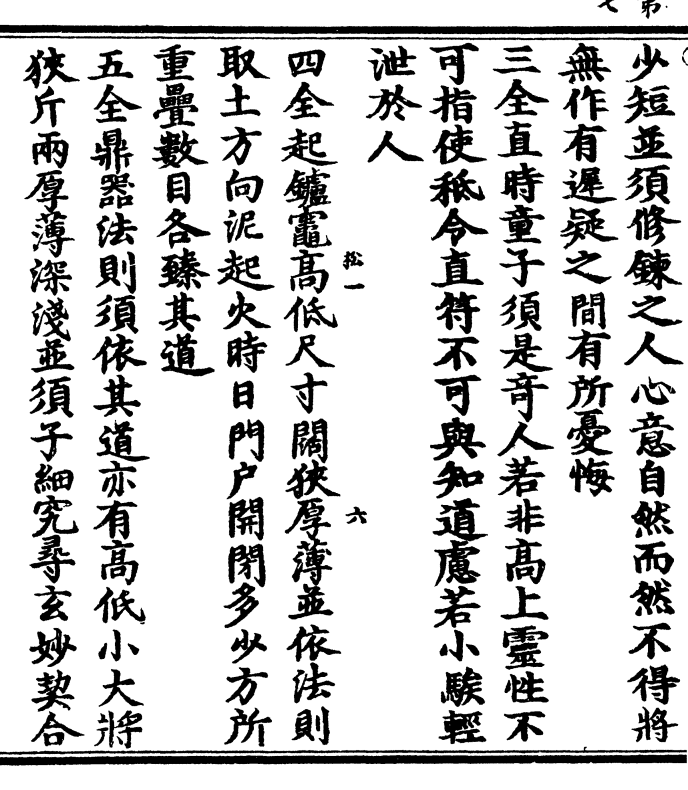 少短並須修鍊之人心意自然而然不得將
無作有遲疑之間有所憂悔
三全直時童子須是奇人若非高上靈性不
可指使秪令直符不可與知道慮若小騃輕
泄於人
松一 六
四全起鑪竈高低尺寸闊狹厚薄並依法則
取土方向泥起火時日門户開閉多少方所
重疊數目各臻其道
五全鼎器法則須依其道亦有高低小大將
狹斤兩厚薄深淺並須子細究尋玄妙契合